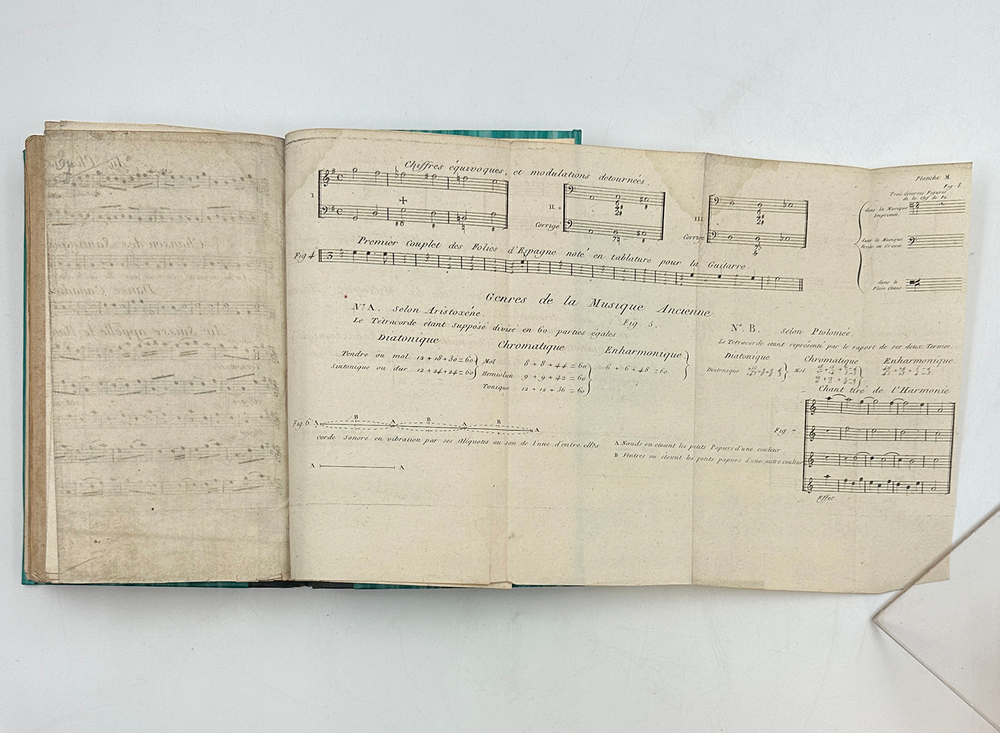 Planche. M.
Chiffres équivoques, et modulations detournées.
Fig. 8.
Trois diverses Figures
de la Clef de Fa.
I
II.
III.
Corrigé
Corrigé
dans la Musique
Imprimée.
dans la Musique
dans le
Plain Chant
Premier Couplet des Folies d'Espagne noté en tablature pour la Guitarre.
Fig 4
Genres de la Musique Ancienne
Fig. 5.
Nº. A. Selon Aristoxéne.
Le Tétracorde étant Supposé divisé en 60. parties égales.
Diatonique
Chromatique
Enharmonique
Tendre ou mol. 12 + 18 + 30 = 60
Sintonique ou dur. 12 + 24 + 24 = 60
Mol 8 + 8 + 44 = 60
Hemiolien 9 + 9 + 42 = 60
Tonique 12 + 12 + 36 = 60
6 + 6 + 48 = 60.
Nº. B. Selon Ptolomée.
Le Tetracorde etant représenté par le raport de ses deux Termes.
Diatonique
Chromatique
Enharmonique
Diatonique
Mol
Chant tiré de l'Harmonie
Fig. 7
Effet
Fig. 6. A B A B A B A
corde Sonore en vibration par ses Aliquotes au son de l'une d'entre elles
A A
A Nœuds ou étoient les petits Papiers d'une couleur
B Ventres ou étoient les petits papiers d'une autre couleur